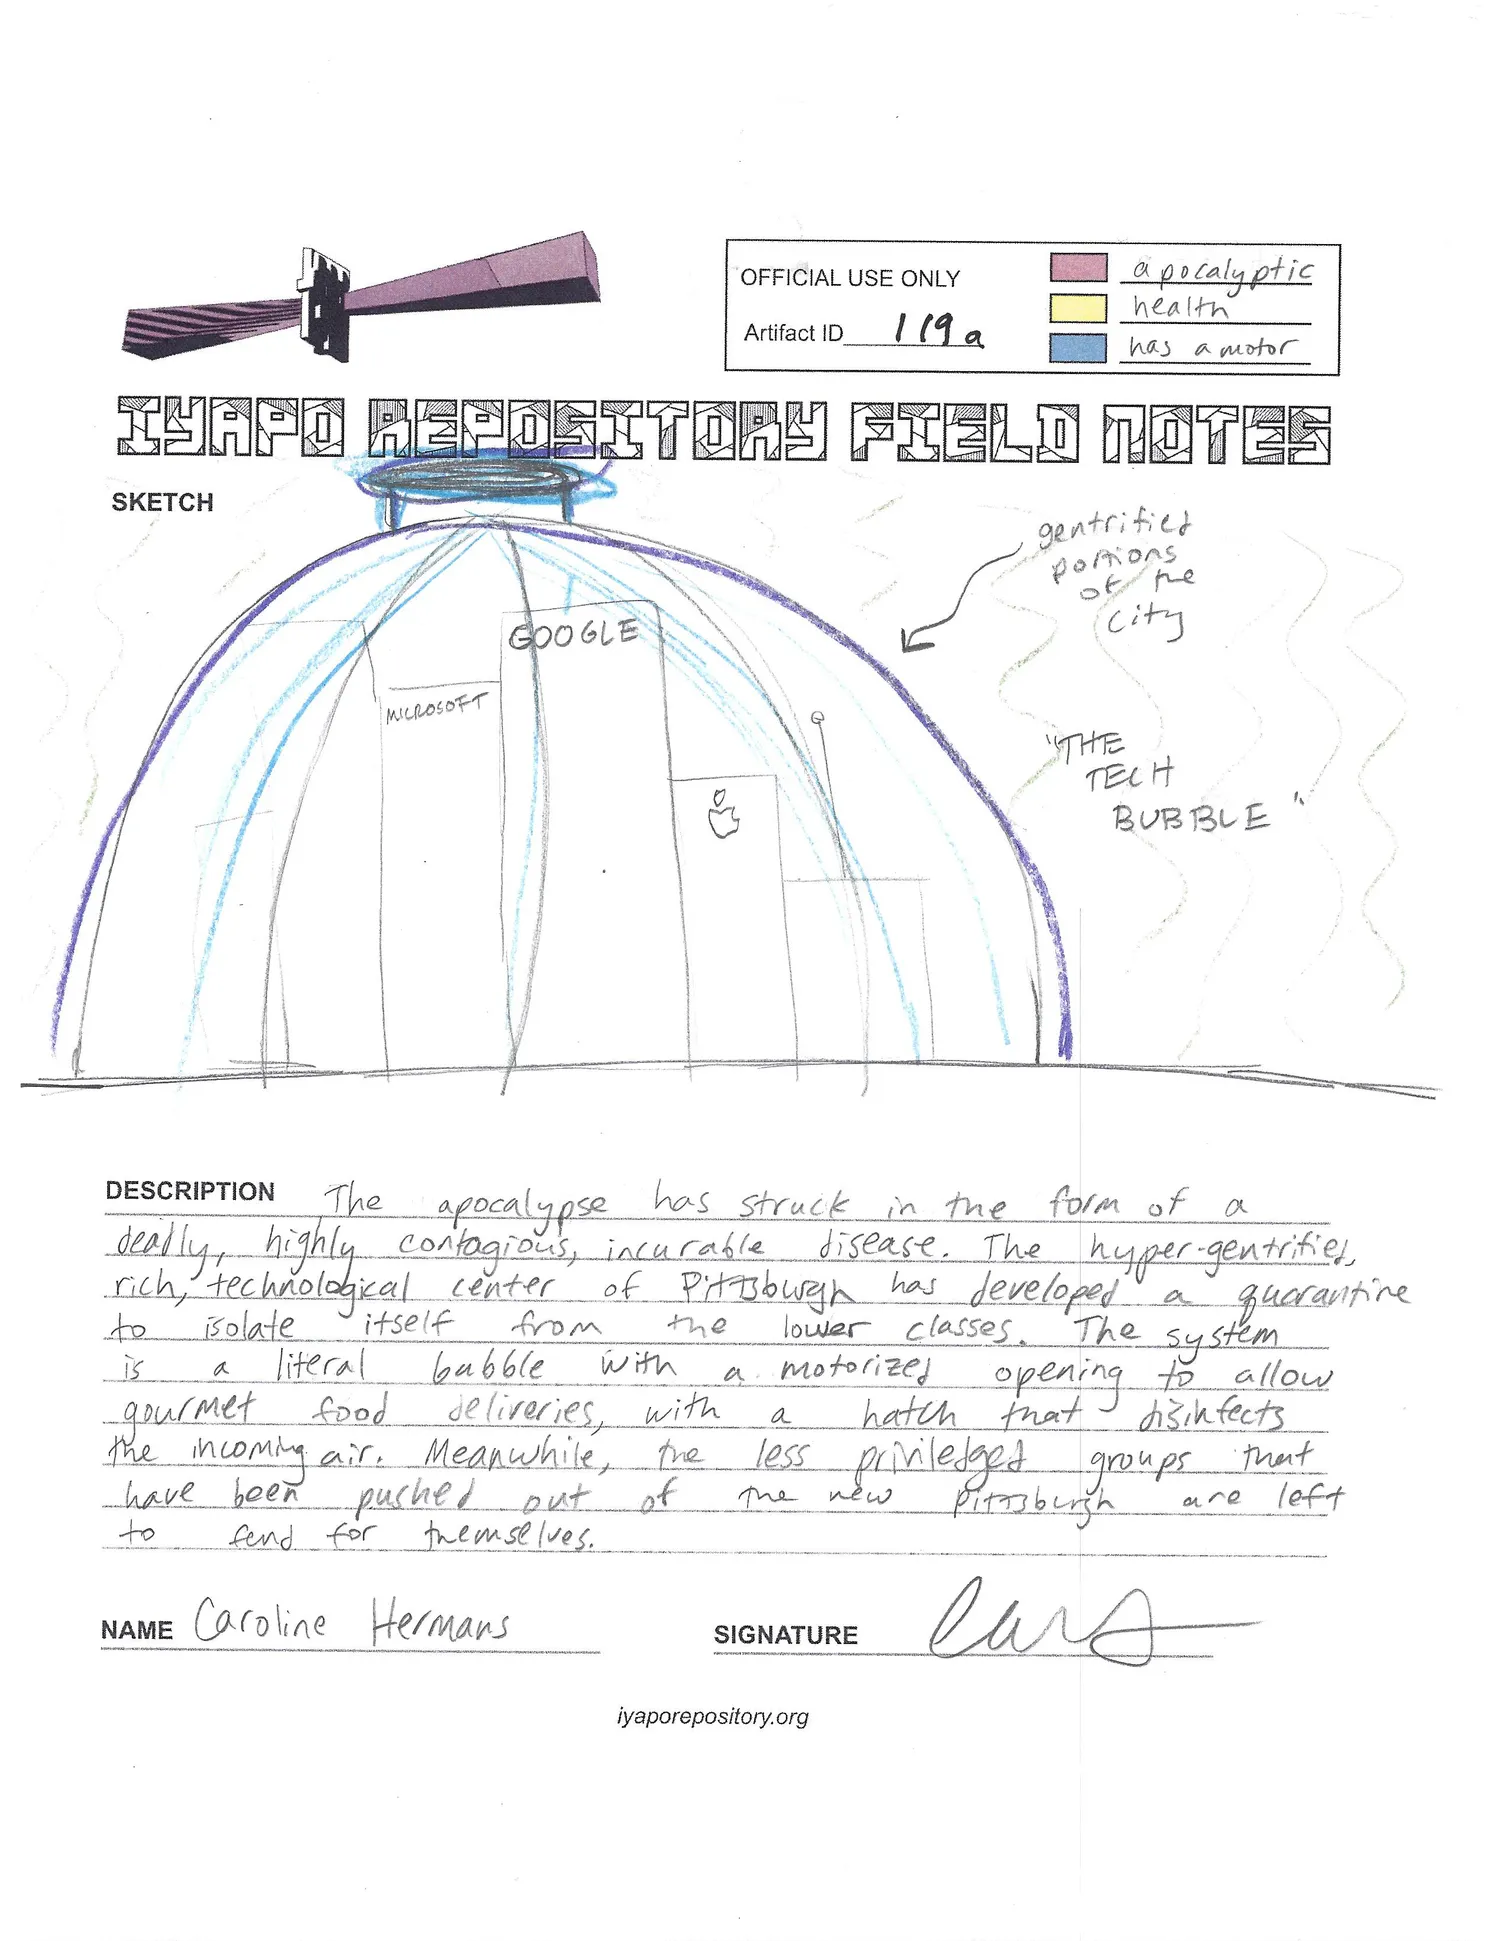 OFFICIAL USE ONLY
Artifact ID 119a
apocalyptic
health
has a motor
IYAPO REPOSITORY FIELD NOTES
SKETCH
gentrified
portions
of the
city
GOOGLE
MICROSOFT
"THE
TECH
BUBBLE"
DESCRIPTION The apocalypse has struck in the form of a
deadly, highly contagious, incurable disease. The hyper-gentrified,
rich, technological center of Pittsburgh has developed a quarantine
to isolate itself from the lower classes. The system
is a literal bubble with a motorized opening to allow
gourmet food deliveries, with a hatch that disinfects
the incoming air. Meanwhile, the less priviledged groups that
have been pushed out of the new Pittsburgh are left
to fend for themselves.
NAME Caroline Hermans
SIGNATURE
iyaporepository.org